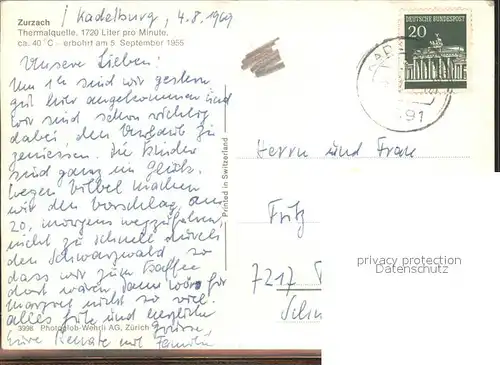 Zurzach
Thermalquelle. 1720 Liter pro Minute,
ca. 40°C - erbohrt am 5. September 1955
/ Kadelburg, 4.8.1969
Unsere Lieben:
Um 14 sind wir gestern
gut hier angekommen und
wir sind schon richtig
dabei, den Urlaub zu
geniessen. Die Kinder
sind ganz im Glück.
Wegen Vilbel machen
wir den Vorschlag, am
20. morgens wegzufahren,
nicht zu schnell durch
den Schwarzwald so
dass wir zum Kaffee
dort wären, dann wäre es für
Margret nicht so viel.
Alles Gute und herzliche
Grüsse,
Eure Renate mit Familie
3998 Photoglob-Wehrli AG, Zürich
Printed in Switzerland
DEUTSCHE BUNDESPOST
20
891
Herrn und Frau
Fritz
7217
privacy protection
Datenschutz